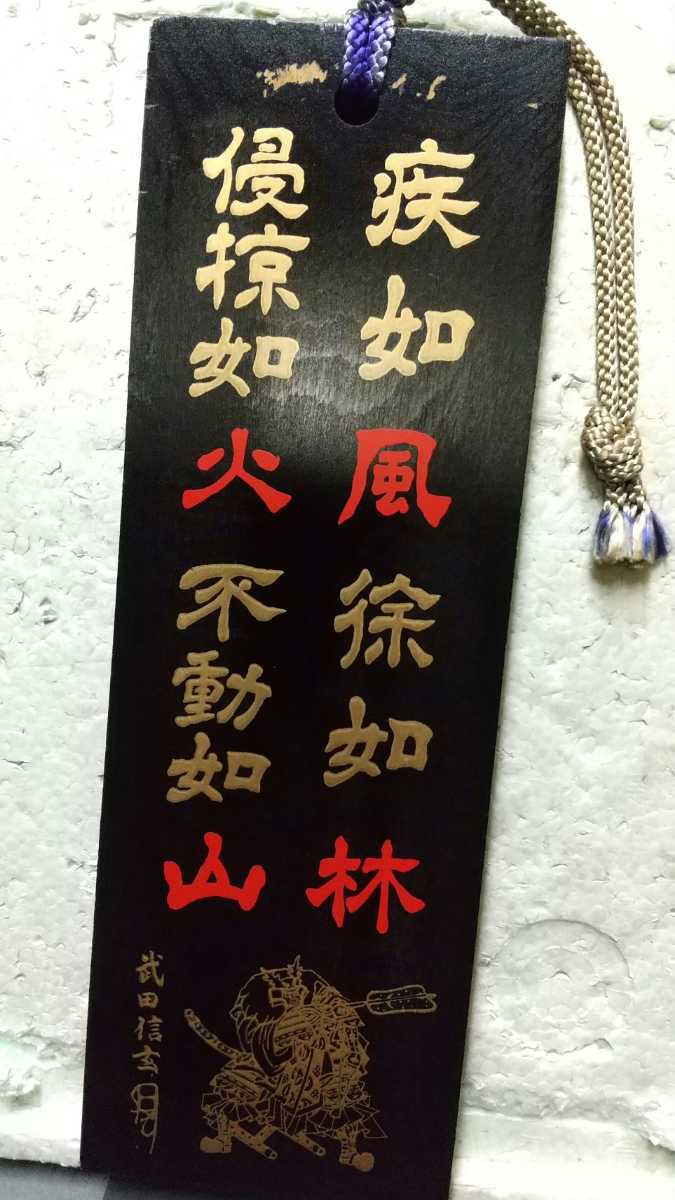 疾如風徐如林
侵掠如火不動如山
武田信玄